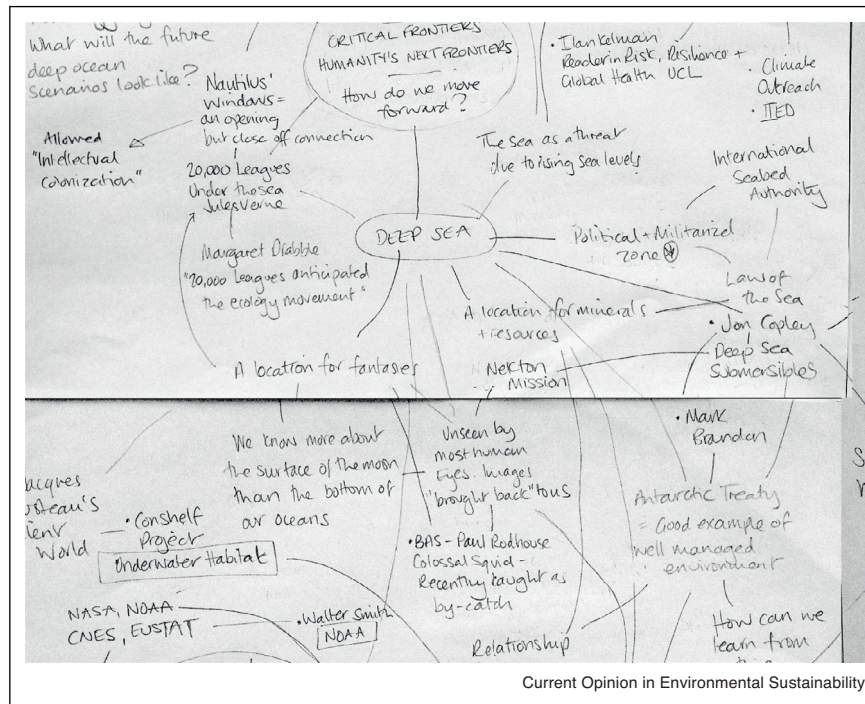 What will the future
deep ocean
scenarios look like?
CRITICAL FRONTIERS
HUMANITY'S NEXT FRONTIERS
How do we move
forward?
• Ilan Kelman
Reader in Risk, Resilience +
Global Health UCL
• Climate
Outreach
• IIED
Nautilus'
windows =
an opening
but close off connection
Allowed
"Intellectual
Colonization"
20,000 Leagues
Under the sea
Jules Verne
The sea as a threat
due to rising sea levels
International
Seabed
Authority
DEEP SEA
Political + Militarized
zone
Margaret Drabble
"20,000 Leagues anticipated
the ecology movement"
Law of
the Sea
A location for minerals
+ resources
• Jon Copley
Deep Sea
Submersibles
A location for fantasies
Nekton
Mission
We know more about
the surface of the moon
than the bottom of
our oceans
Unseen by
most human
Eyes. Images
"brought back" to us
• Mark
Brandon
Antarctic Treaty
= Good example of
well managed
environment
acques
usteau's
ient
World
• Conshelf
Project
Underwater Habitat
• BAS - Paul Rodhouse
Colossal Squid -
Recently caught as
by-catch
NASA, NOAA
CNES, EUSTAT
• Walter Smith
NOAA
Relationship
How can we
learn from
Current Opinion in Environmental Sustainability